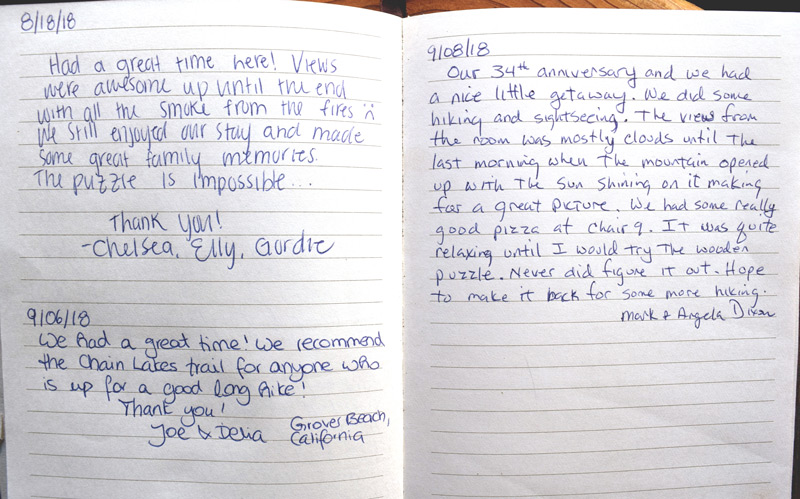 8/18/18
Had a great time here! Views
were awesome up until the end
with all the smoke from the fires :(
We still enjoyed our stay and made
some great family memories.
The puzzle is impossible...
Thank you!
-Chelsea, Elly, Gordie
9/06/18
We had a great time! We recommend
the Chain Lakes trail for anyone who
is up for a good long hike!
Thank you!
Joe & Delia Grover Beach,
California
9/08/18
Our 34th anniversary and we had
a nice little getaway. We did some
hiking and sightseeing. The view from
the room was mostly clouds until the
last morning when the mountain opened
up with the sun shining on it making
for a great picture. We had some really
good pizza at chair 9. It was quite
relaxing until I would try the wooden
puzzle. Never did figure it out. Hope
to make it back for some more hiking.
Mark & Angela Dixon